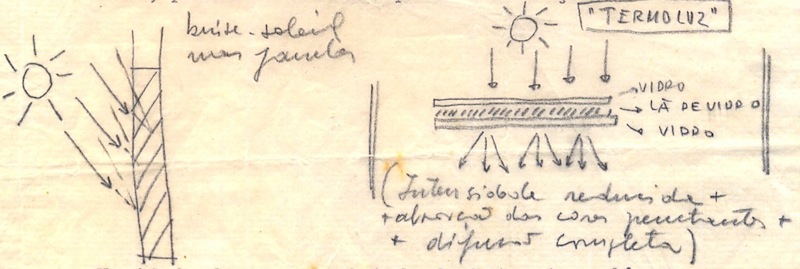 brise-soleil
nas janelas
"TERMOLUZ"
VIDRO
LÃ DE VIDRO
VIDRO
(Intensidade reduzida +
+ absorção das cores penetrantes +
+ difusão completa)